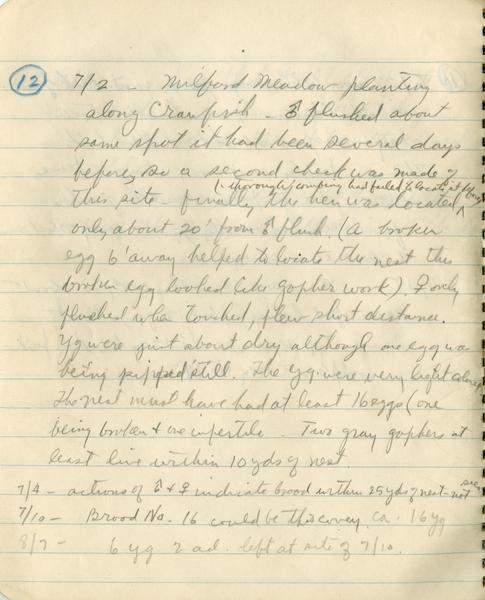 (12) 7/2 - Milford Meadow planting
along Crawfish - ♂ flushed about
same spot it had been several days
before, so a second check was made of
(- thorough combing had failed to locate at first)
this site - finally the hen was located
only about 20' from ♂ flush. (A broken
egg 6' away helped to locate the nest this
broken egg looked like gopher work). ♀ only
flushed when touched, flew short distance.
Yg were just about dry although one egg was
being pipped still. The yg. were very light colored
The nest must have had at least 16 eggs (one
being broken + one infertile. Two gray gophers at
least live within 10 yds of nest.
7/4 - actions of ♂ + ♀ indicate brood within 25 yds of nest - not seen
7/10 - Brood No. 16 could be this covey. ca. 16 yg
8/7 - 6 yg 2 ad. left at site of 7/10.